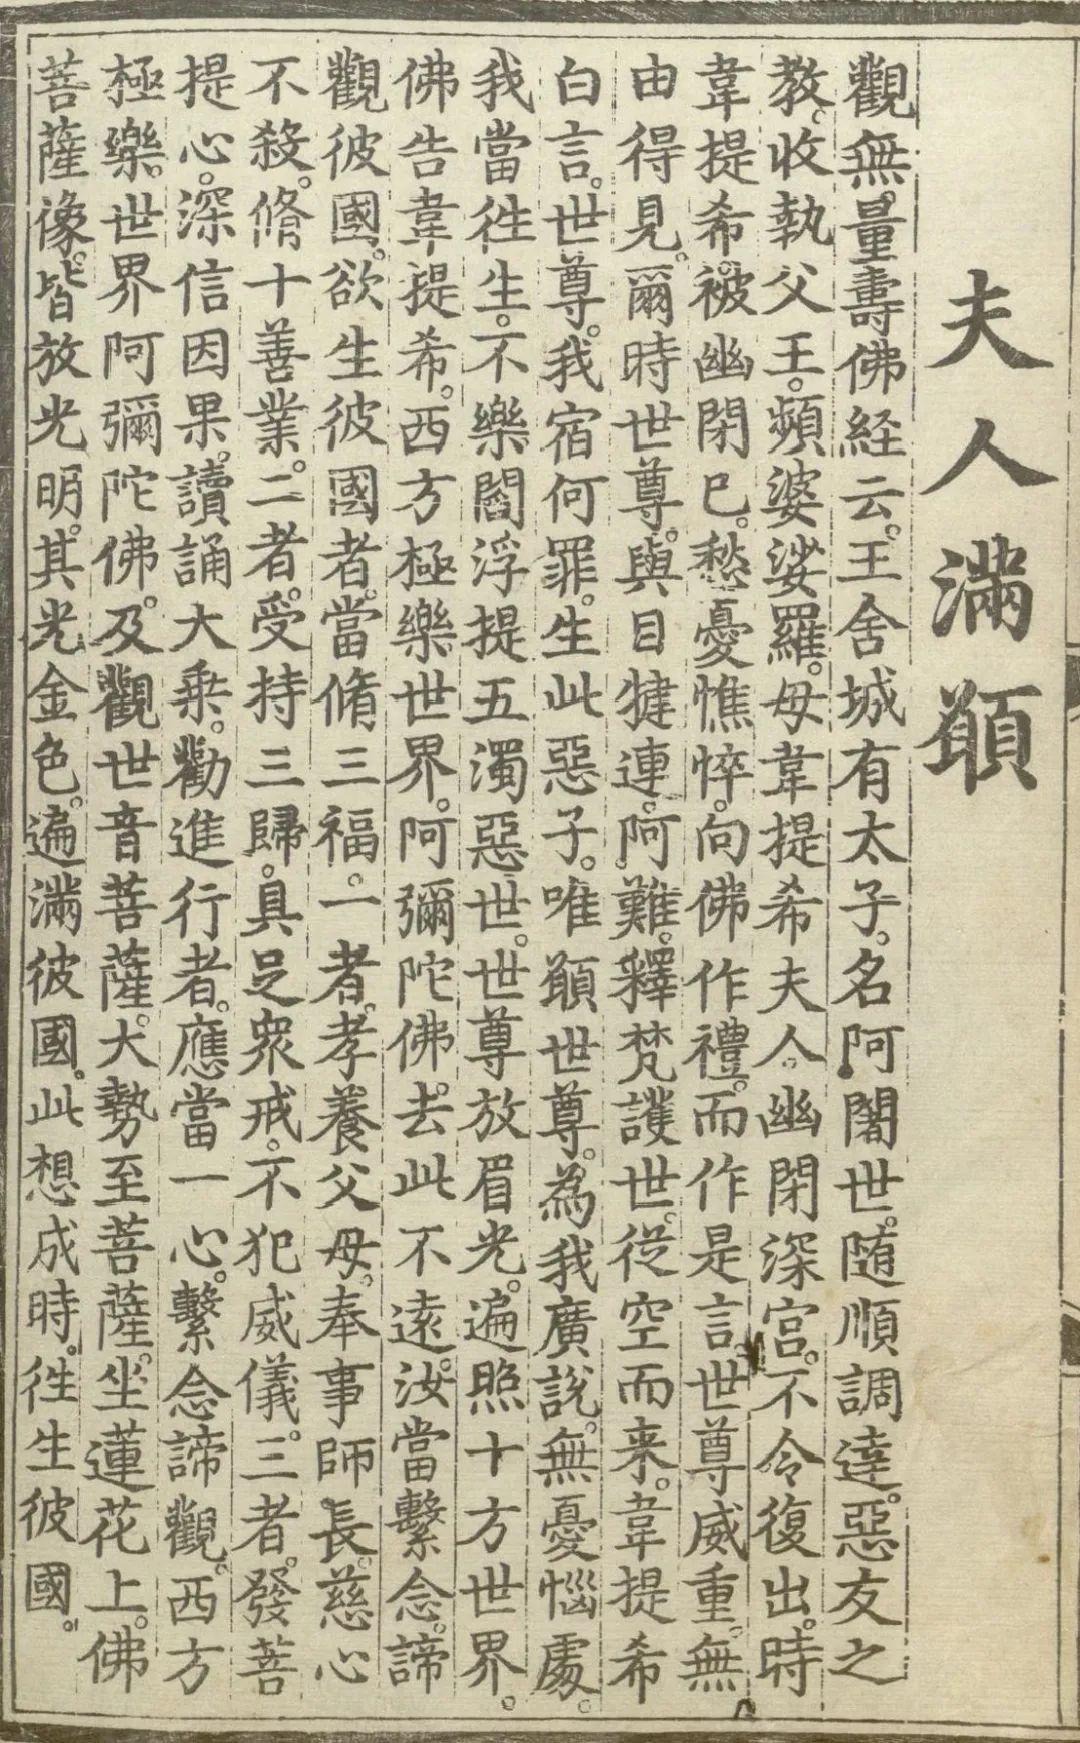 夫人滿願
觀無量壽佛経云。王舍城有太子。名阿闍世。随順調達。惡友之
教。收執父王。頻婆娑羅。母韋提希夫人。幽閉深宮。不令復出。時
韋提希。被幽閉已。愁憂憔悴。向佛作禮。而作是言。世尊威重。無
由得見。爾時世尊。與目犍連。阿難。釋梵護世。從空而来。韋提希
白言。世尊。我宿何罪。生此惡子。唯願世尊。為我廣説。無憂惱處。
我當往生。不樂閻浮提五濁惡世。世尊放眉光。遍照十方世界。
佛告韋提希。西方極樂世界。阿彌陀佛。去此不遠。汝當繫念。諦
觀彼國。欲生彼國者。當脩三福。一者。孝養父母。奉事師長。慈心
不殺。脩十善業。二者。受持三歸。具足衆戒。不犯威儀。三者。發菩
提心。深信因果。讀誦大乗。勸進行者。應當一心。繫念諦觀。西方
極樂。世界阿彌陀佛。及觀世音菩薩。大勢至菩薩。坐蓮花上。佛
菩薩像。皆放光明。其光金色。遍滿彼國。此想成時。往生彼國。